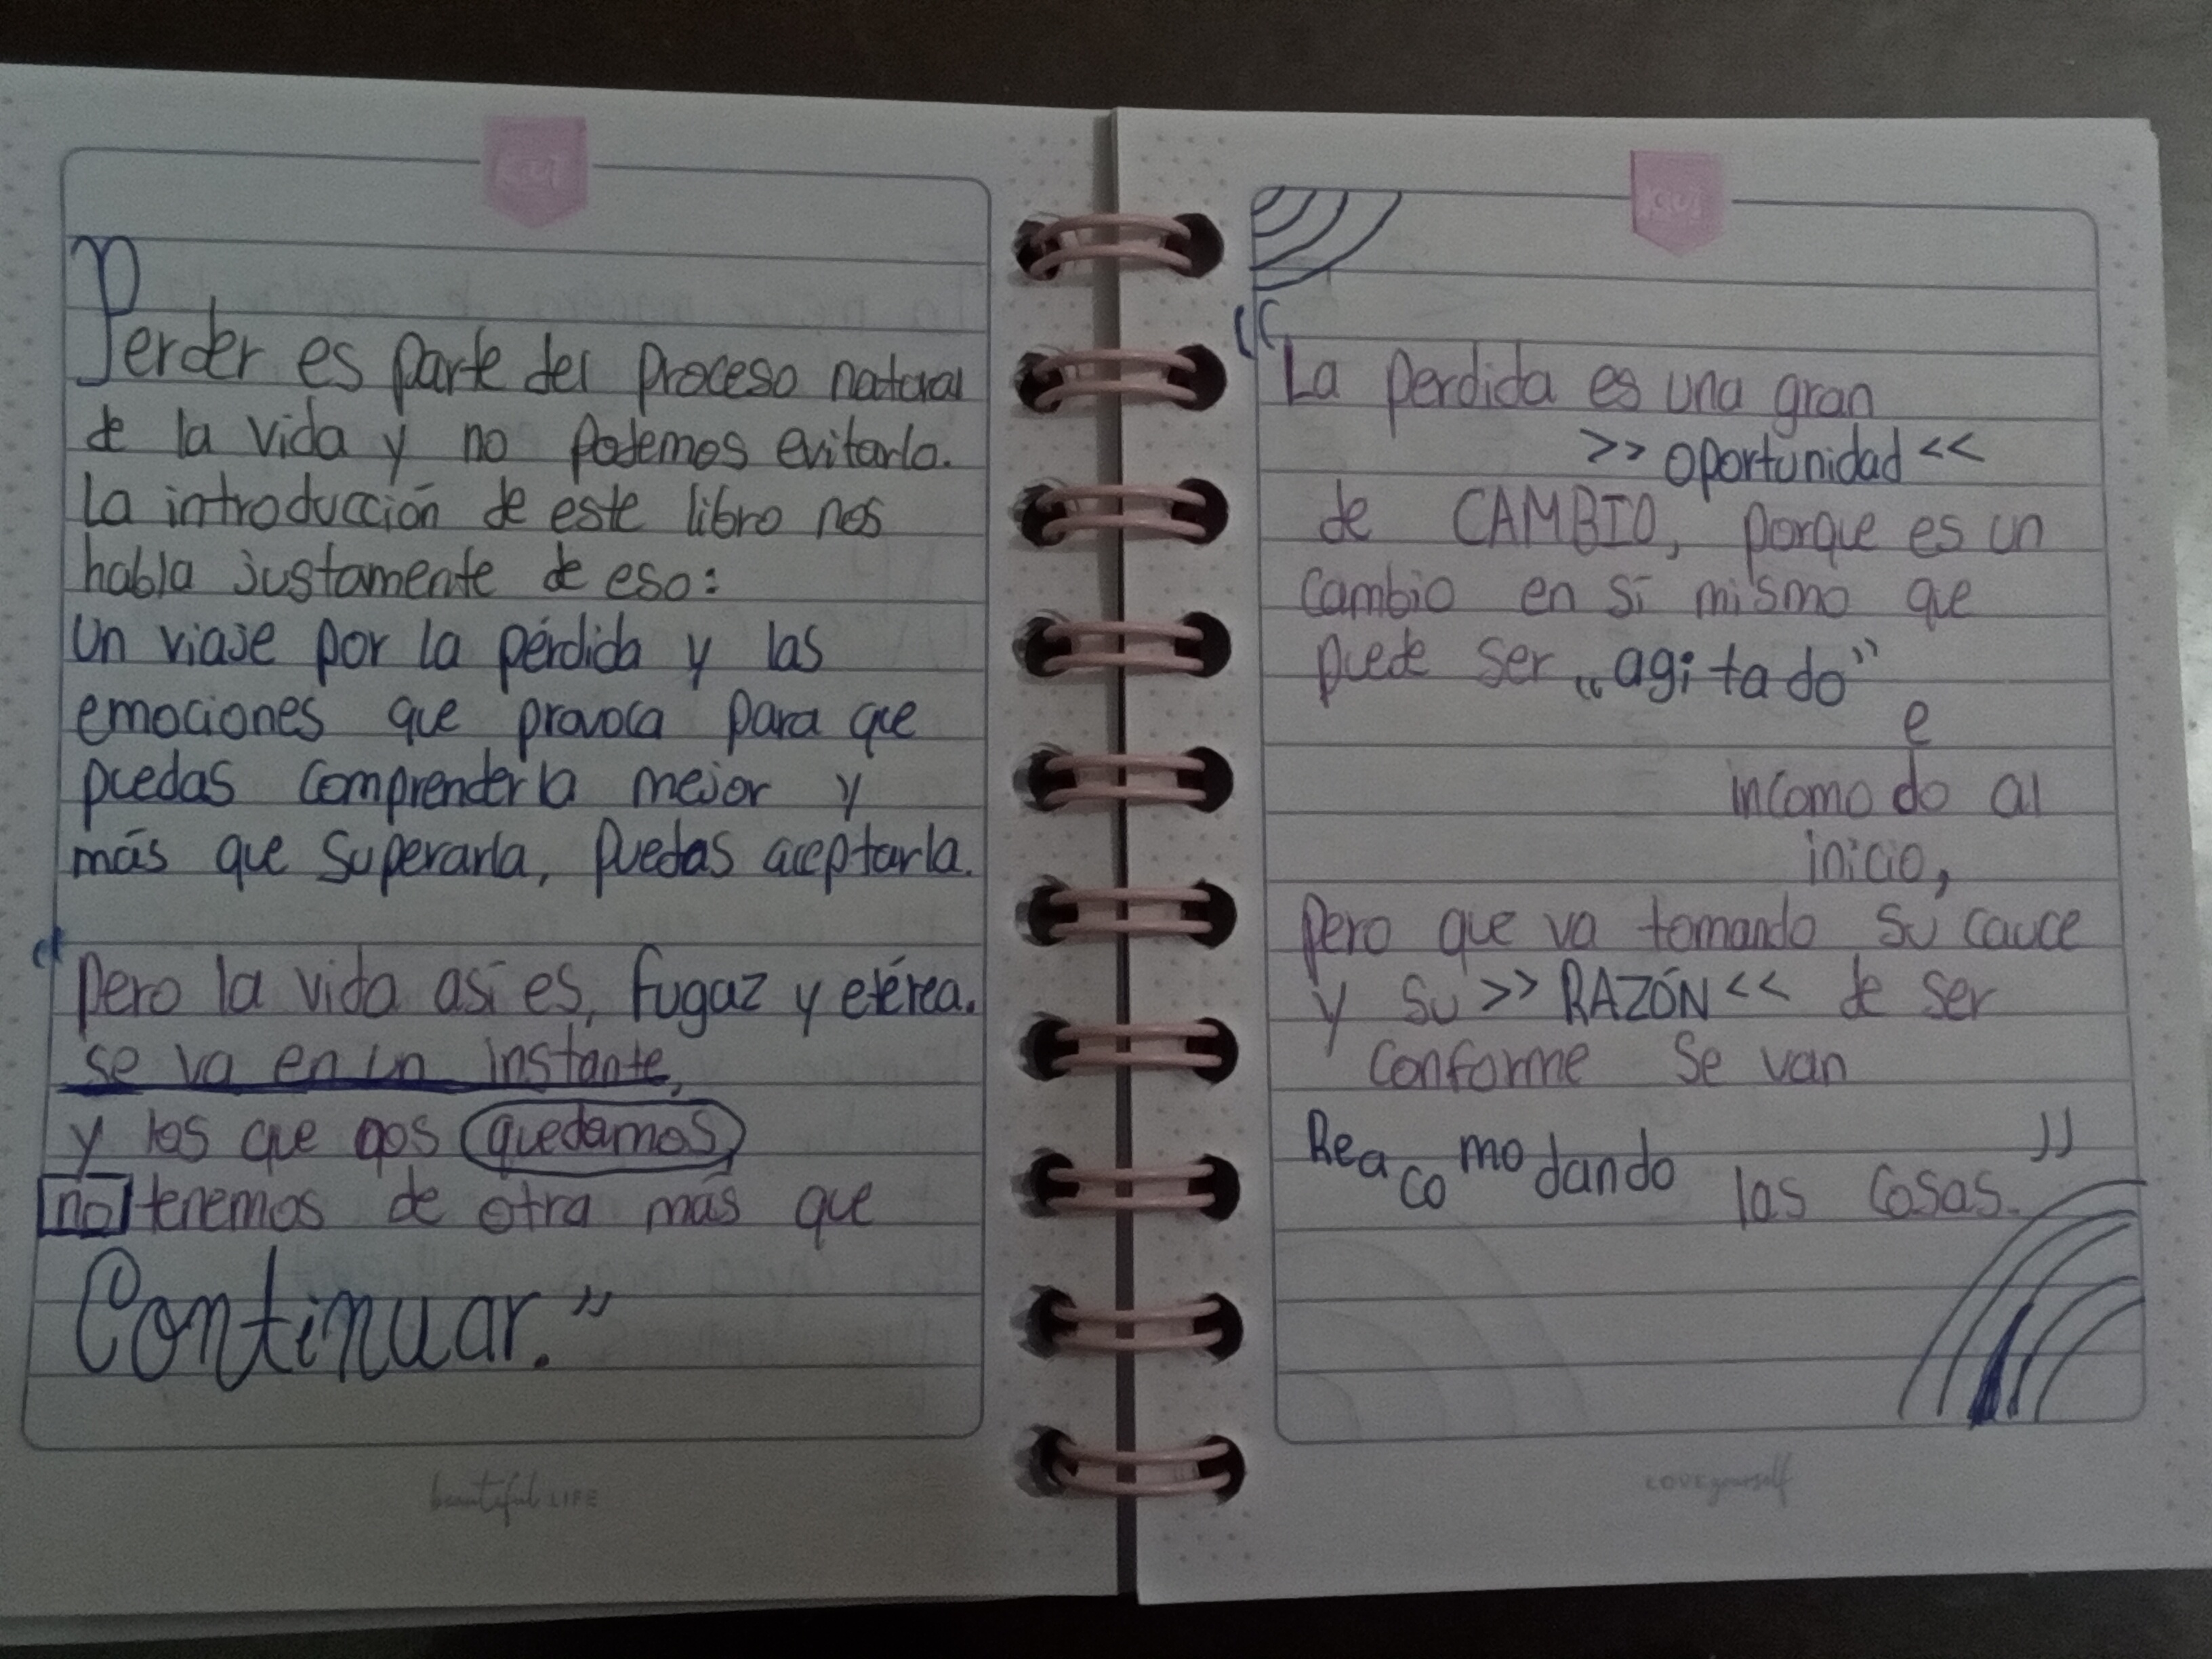 Perder es parte del proceso natural
de la vida y no podemos evitarlo.
La introducción de este libro nos
habla justamente de eso:
Un viaje por la pérdida y las
emociones que provoca para que
puedas comprenderla mejor y
más que superarla, puedas aceptarla.
"Pero la vida así es, fugaz y etérea.
se va en un instante,
y los que nos quedamos
no tenemos de otra más que
Continuar."
beautiful LIFE
"La perdida es una gran
>> oportunidad <<
de CAMBIO, porque es un
cambio en sí mismo que
puede ser „agitado"
e
incomodo al
inicio,
pero que va tomando su cauce
y su >> RAZÓN << de ser
conforme se van
Reacomodando las cosas."
LOVE yourself